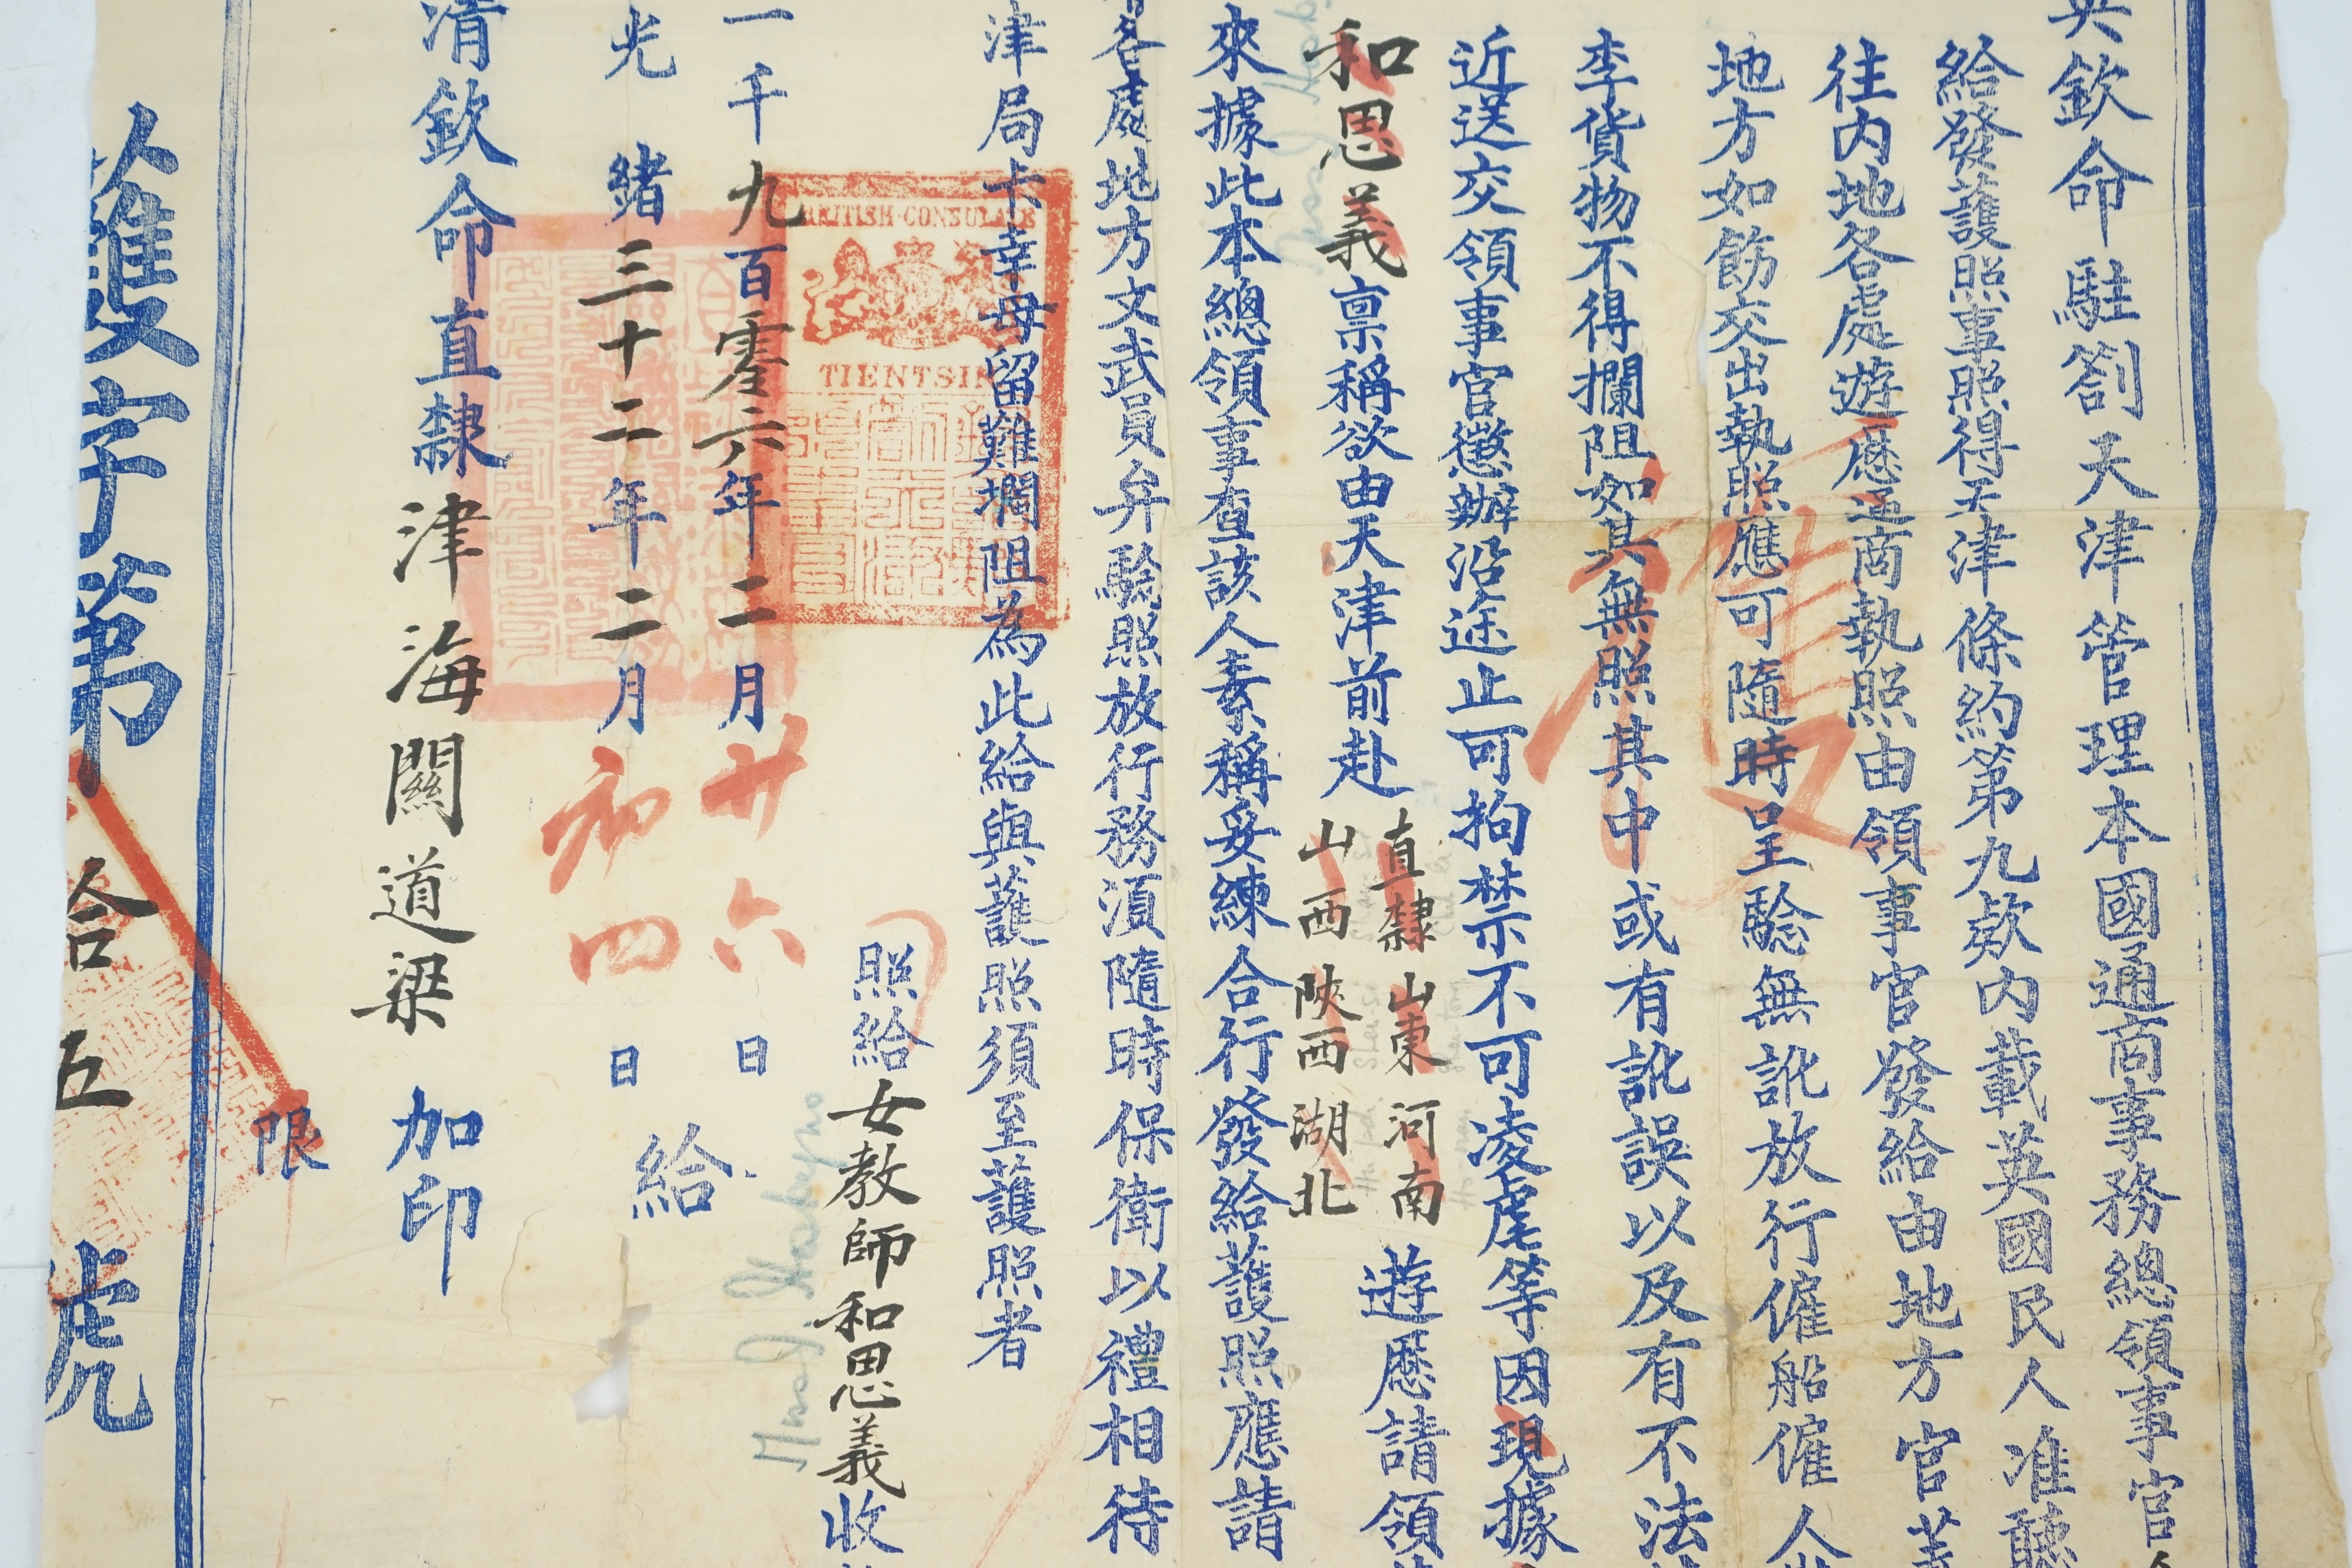 英欽命駐劄天津管理本國通商事務總領事官
給發護照事照得天津條約第九款内載英國民人准聽
往内地各處遊歷通商執照由領事官發給由地方官
地方如飭交出執照應可隨時呈驗無訛放行僱船僱人
李貨物不得攔阻如其無照其中或有訛誤以及有不法
近送交領事官懲辦沿途止可拘禁不可凌虐等因現據
和思義禀稱欲由天津前赴直隸山東河南山西陝西湖北遊歷請領
來據此本總領事查該人素稱妥練合行發給護照應請
各處地方文武員弁驗照放行務須隨時保衛以禮相待
津局卡幸毋留難攔阻為此給與護照須至護照者
照給女教師和思義收
一千九百零六年二月廿六日
光緒三十二年二月初四日給
清欽命直隸津海關道梁加印
限
護字第拾五號
BRITISH CONSULATE
TIENTSIN